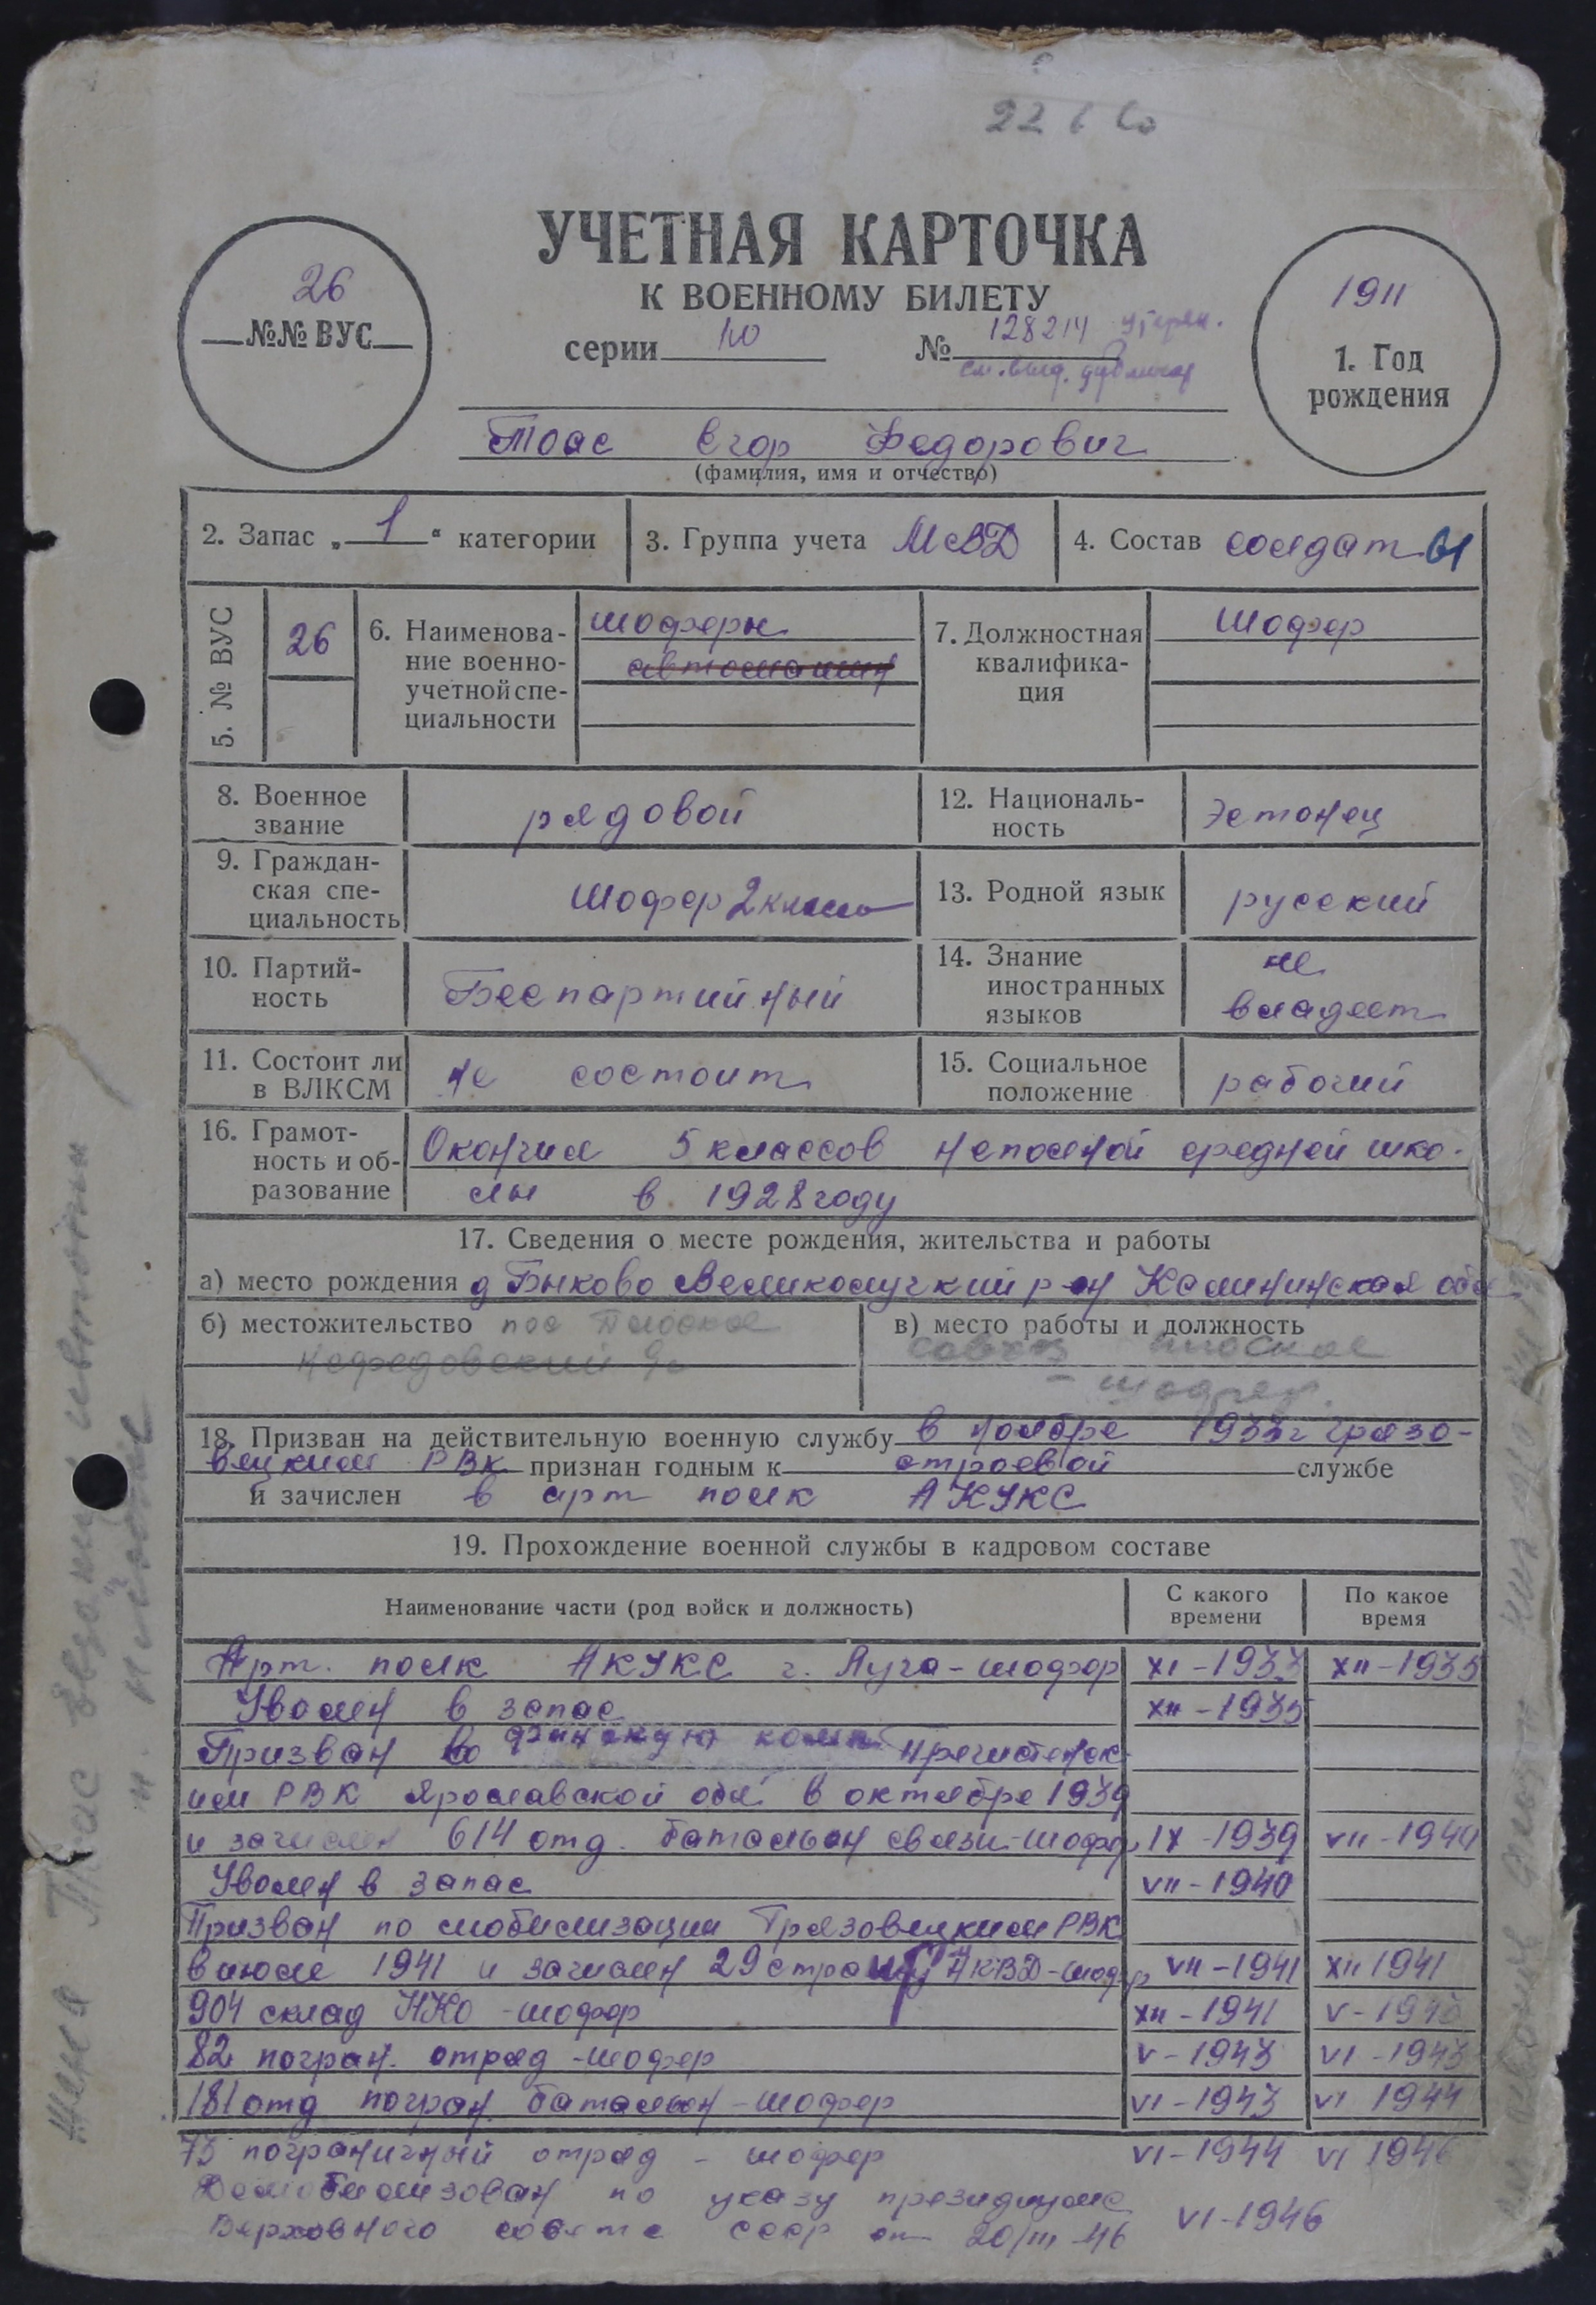 УЧЕТНАЯ КАРТОЧКА
К ВОЕННОМУ БИЛЕТУ
серии Ю № 128214 утерян.
см. выд. дубликат
26
№№ ВУС
1911
1. Год
рождения
Тоас Егор Федорович
(фамилия, имя и отчество)
2. Запас „1“ категории
3. Группа учета МВД
4. Состав солдаты
5. № ВУС 26
6. Наименова-
ние военно-
учетной спе-
циальности
шоферы
автомашин
7. Должностная
квалифика-
ция
Шофер
8. Военное
звание
рядовой
12. Националь-
ность
Эстонец
9. Граждан-
ская спе-
циальность
Шофер 2 класса
13. Родной язык русский
10. Партий-
ность
Беспартийный
14. Знание
иностранных
языков
не
владеет
11. Состоит ли
в ВЛКСМ
не состоит
15. Социальное
положение
рабочий
16. Грамот-
ность и об-
разование
Окончил 5 классов неполной средней шко-
лы в 1928 году
17. Сведения о месте рождения, жительства и работы
а) место рождения д Быково Великолукский р-н Калининская обл
б) местожительство пос Плоское
в) место работы и должность
совхоз Плоское
- шофер.
18. Призван на действительную военную службу в ноябре 1933 г Грязо-
вецким РВК признан годным к строевой службе
и зачислен в арт полк АКУКС
19. Прохождение военной службы в кадровом составе
Наименование части (род войск и должность)
С какого
времени
По какое
время
Арт. полк АКУКС г. Луга - шофер XI - 1933 XII - 1935
Уволен в запас XII - 1935
Призван во финскую комп Пречистенск-
им РВК Ярославской обл в октябре 1939
и зачислен 614 отд. батальон связи - шофер IX - 1939 VII - 1940
Уволен в запас VII - 1940
Призван по мобилизации Грязовецким РВК
в июле 1941 и зачислен 29 стр НКВД - шофер VII - 1941 XII 1941
904 склад НКО - шофер XII - 1941 V - 1943
82 погран. отряд - шофер V - 1943 VI - 1943
181 отд погран. батальон - шофер VI - 1943 VI 1944
73 пограничный отряд - шофер VI - 1944 VI 1946
Демобилизован по указу президиума
Верховного совета СССР от 20/III-46 VI-1946
Жена Тоас